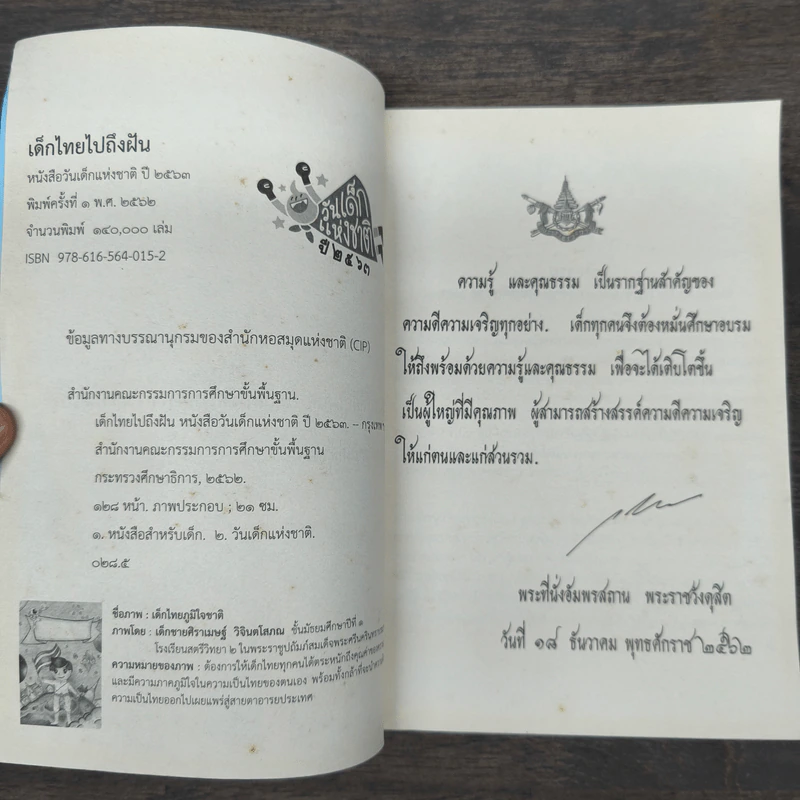 เด็กไทยไปถึงฝัน
หนังสือวันเด็กแห่งชาติ ปี ๒๕๖๓
พิมพ์ครั้งที่ ๑ พ.ศ. ๒๕๖๒
จำนวนพิมพ์ ๑๔๐,๐๐๐ เล่ม
ISBN 978-616-564-015-2
วันเด็ก
แห่งชาติ
ปี ๒๕๖๓
ข้อมูลทางบรรณานุกรมของสำนักหอสมุดแห่งชาติ (CIP)
สำนักงานคณะกรรมการการศึกษาขั้นพื้นฐาน.
เด็กไทยไปถึงฝัน หนังสือวันเด็กแห่งชาติ ปี ๒๕๖๓. – กรุงเทพฯ
สำนักงานคณะกรรมการการศึกษาขั้นพื้นฐาน
กระทรวงศึกษาธิการ, ๒๕๖๒.
๑๒๘ หน้า. ภาพประกอบ ; ๒๑ ซม.
๑. หนังสือสำหรับเด็ก. ๒. วันเด็กแห่งชาติ.
๐๒๘.๕
ชื่อภาพ : เด็กไทยภูมิใจชาติ
ภาพโดย : เด็กชายศิราเมษฐ์ วิจินตโสภณ ชั้นมัธยมศึกษาปีที่ ๑
โรงเรียนสตรีวิทยา ๒ ในพระราชูปถัมภ์สมเด็จพระศรีนครินทรา
ความหมายของภาพ : ต้องการให้เด็กไทยทุกคนได้ตระหนักถึงคุณค่าของ
และมีความภาคภูมิใจในความเป็นไทยของตนเอง พร้อมทั้งกล้าที่จะนำ
ความเป็นไทยออกไปเผยแพร่สู่สายตาอารยประเทศ
ความรู้ และคุณธรรม เป็นรากฐานสำคัญของ
ความดีความเจริญทุกอย่าง. เด็กทุกคนจึงต้องหมั่นศึกษาอบรม
ให้ถึงพร้อมด้วยความรู้และคุณธรรม เพื่อจะได้เติบโตขึ้น
เป็นผู้ใหญ่ที่มีคุณภาพ ผู้สามารถสร้างสรรค์ความดีความเจริญ
ให้แก่ตนและแก่ส่วนรวม.
พระที่นั่งอัมพรสถาน พระราชวังดุสิต
วันที่ ๑๘ ธันวาคม พุทธศักราช ๒๕๖๒